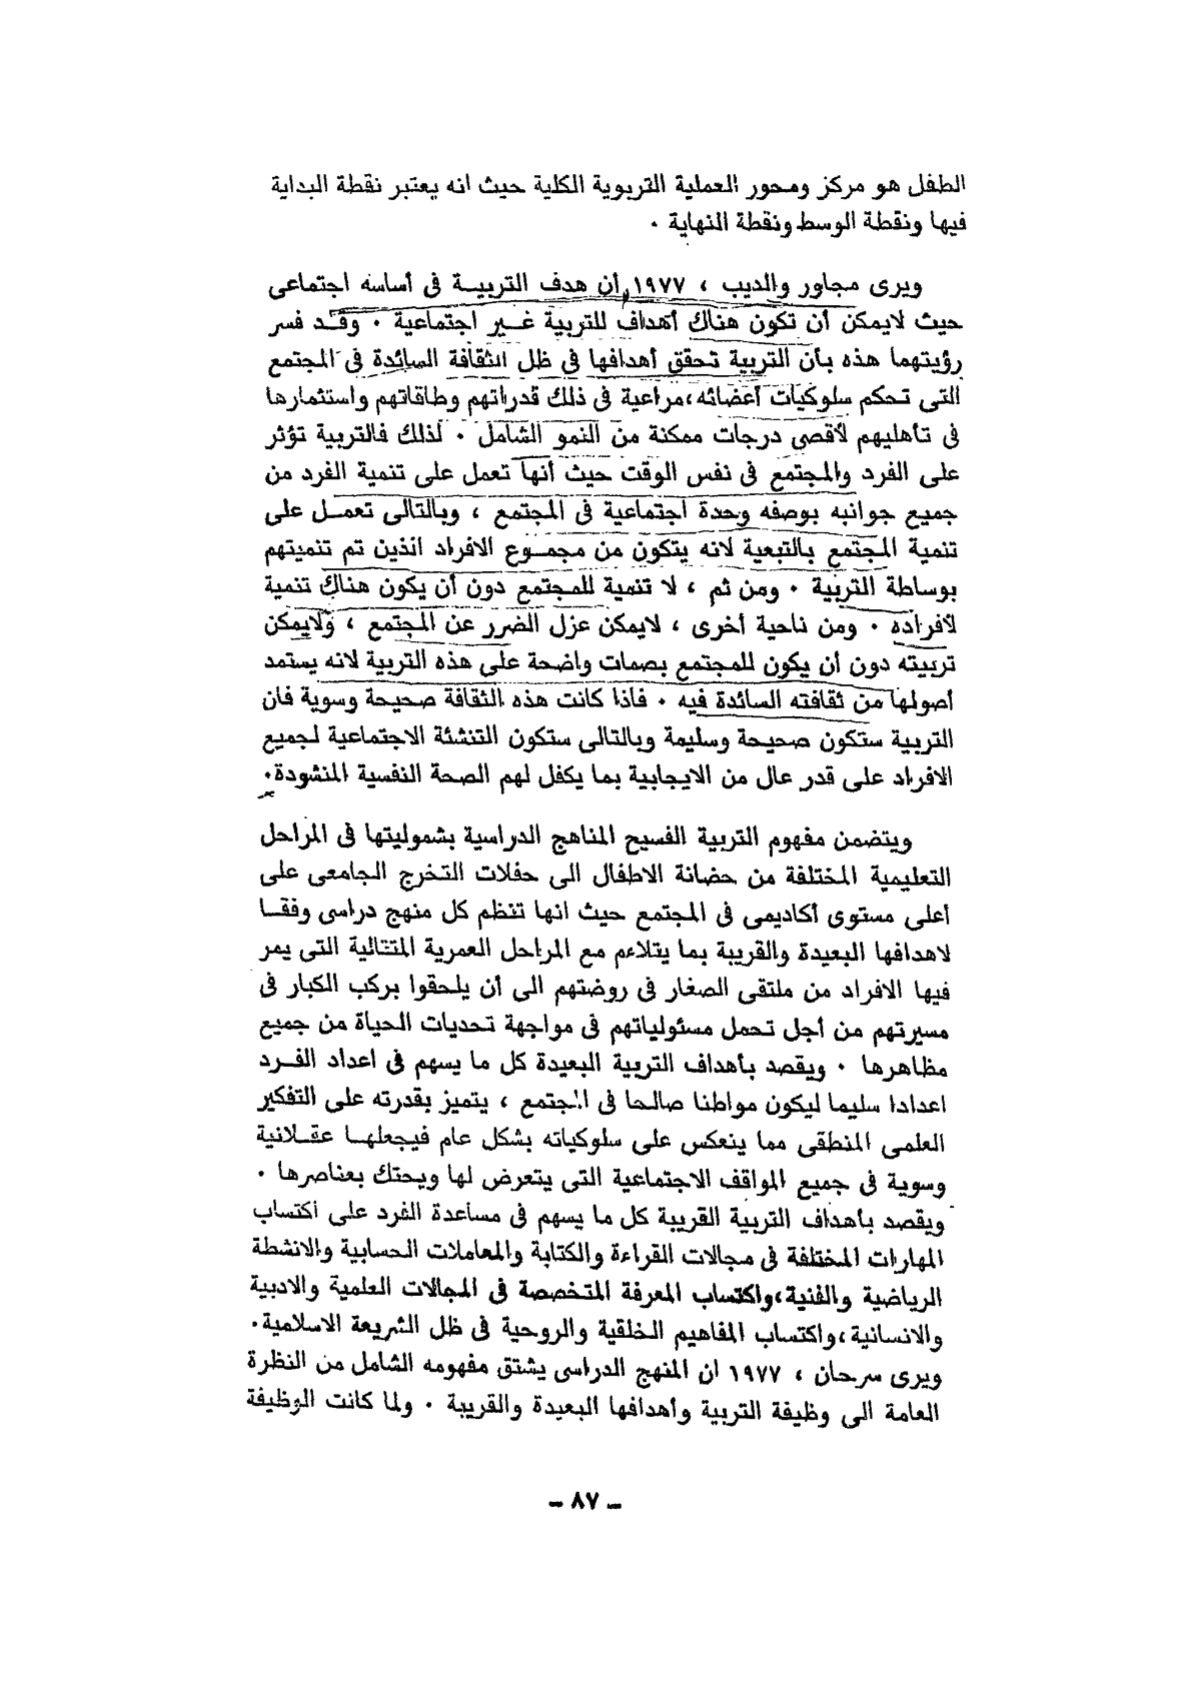 الطفل هو مركز ومحور العملية التربوية الكلية حيث انه يعتبر نقطة البداية
فيها ونقطة الوسط ونقطة النهاية ٠
ويرى مجاور والديب ، ١٩٧٧ أن هدف التربيــة فى أساسه اجتماعى
حيث لايمكن أن تكون هناك أهداف للتربية غــير اجتماعية ٠ وقــد فسر
رؤيتهما هذه بأن التربية تحقق أهدافها فى ظل الثقافة السائدة فى المجتمع
التى تحكم سلوكيات أعضائه ،مراعية فى ذلك قدراتهم وطاقاتهم واستثمارها
فى تأهليهم لأقصى درجات ممكنة من النمو الشامل ٠ لذلك فالتربية تؤثر
على الفرد والمجتمع فى نفس الوقت حيث أنها تعمل على تنمية الفرد من
جميع جوانبه بوصفه وحدة اجتماعية فى المجتمع ، وبالتالى تعمــل على
تنمية المجتمع بالتبعية لانه يتكون من مجمــوع الافراد الذين تم تنميتهم
بوساطة التربية ٠ ومن ثم ، لا تنمية للمجتمع دون أن يكون هناك تنمية
لأفراده ٠ ومن ناحية أخرى ، لايمكن عزل الضرر عن المجتمع ، ولايمكن
تربيته دون أن يكون للمجتمع بصمات واضحة على هذه التربية لانه يستمد
أصولها من ثقافته السائدة فيه ٠ فاذا كانت هذه الثقافة صحيحة وسوية فان
التربية ستكون صحيحة وسليمة وبالتالى ستكون التنشئة الاجتماعية لجميع
الافراد على قدر عال من الايجابية بما يكفل لهم الصحة النفسية المنشودة٠
ويتضمن مفهوم التربية الفسيح المناهج الدراسية بشموليتها فى المراحل
التعليمية المختلفة من حضانة الاطفال الى حفلات التخرج الجامعى على
أعلى مستوى أكاديمى فى المجتمع حيث انها تنظم كل منهج دراسى وفقــا
لاهدافها البعيدة والقريبة بما يتلاءم مع المراحل العمرية المتتالية التى يمر
فيها الافراد من ملتقى الصغار فى روضتهم الى أن يلحقوا بركب الكبار فى
مسيرتهم من أجل تحمل مسئولياتهم فى مواجهة تحديات الحياة من جميع
مظاهرها ٠ ويقصد بأهداف التربية البعيدة كل ما يسهم فى اعداد الفــرد
اعدادا سليما ليكون مواطنا صالحا فى المجتمع ، يتميز بقدرته على التفكير
العلمى المنطقى مما ينعكس على سلوكياته بشكل عام فيجعلهــا عقــلانية
وسوية فى جميع المواقف الاجتماعية التى يتعرض لها ويحتك بعناصرها ٠
ويقصد بأهداف التربية القريبة كل ما يسهم فى مساعدة الفرد على اكتساب
المهارات المختلفة فى مجالات القراءة والكتابة والمعاملات الحسابية والانشطة
الرياضية والفنية ،واكتساب المعرفة المتخصصة فى المجالات العلمية والادبية
والانسانية ،واكتساب المفاهيم الخلقية والروحية فى ظل الشريعة الاسلامية٠
ويرى سرحان ، ١٩٧٧ ان المنهج الدراسى يشتق مفهومه الشامل من النظرة
العامة الى وظيفة التربية وأهدافها البعيدة والقريبة ٠ ولما كانت الوظيفة
ــ ٨٧ ــ